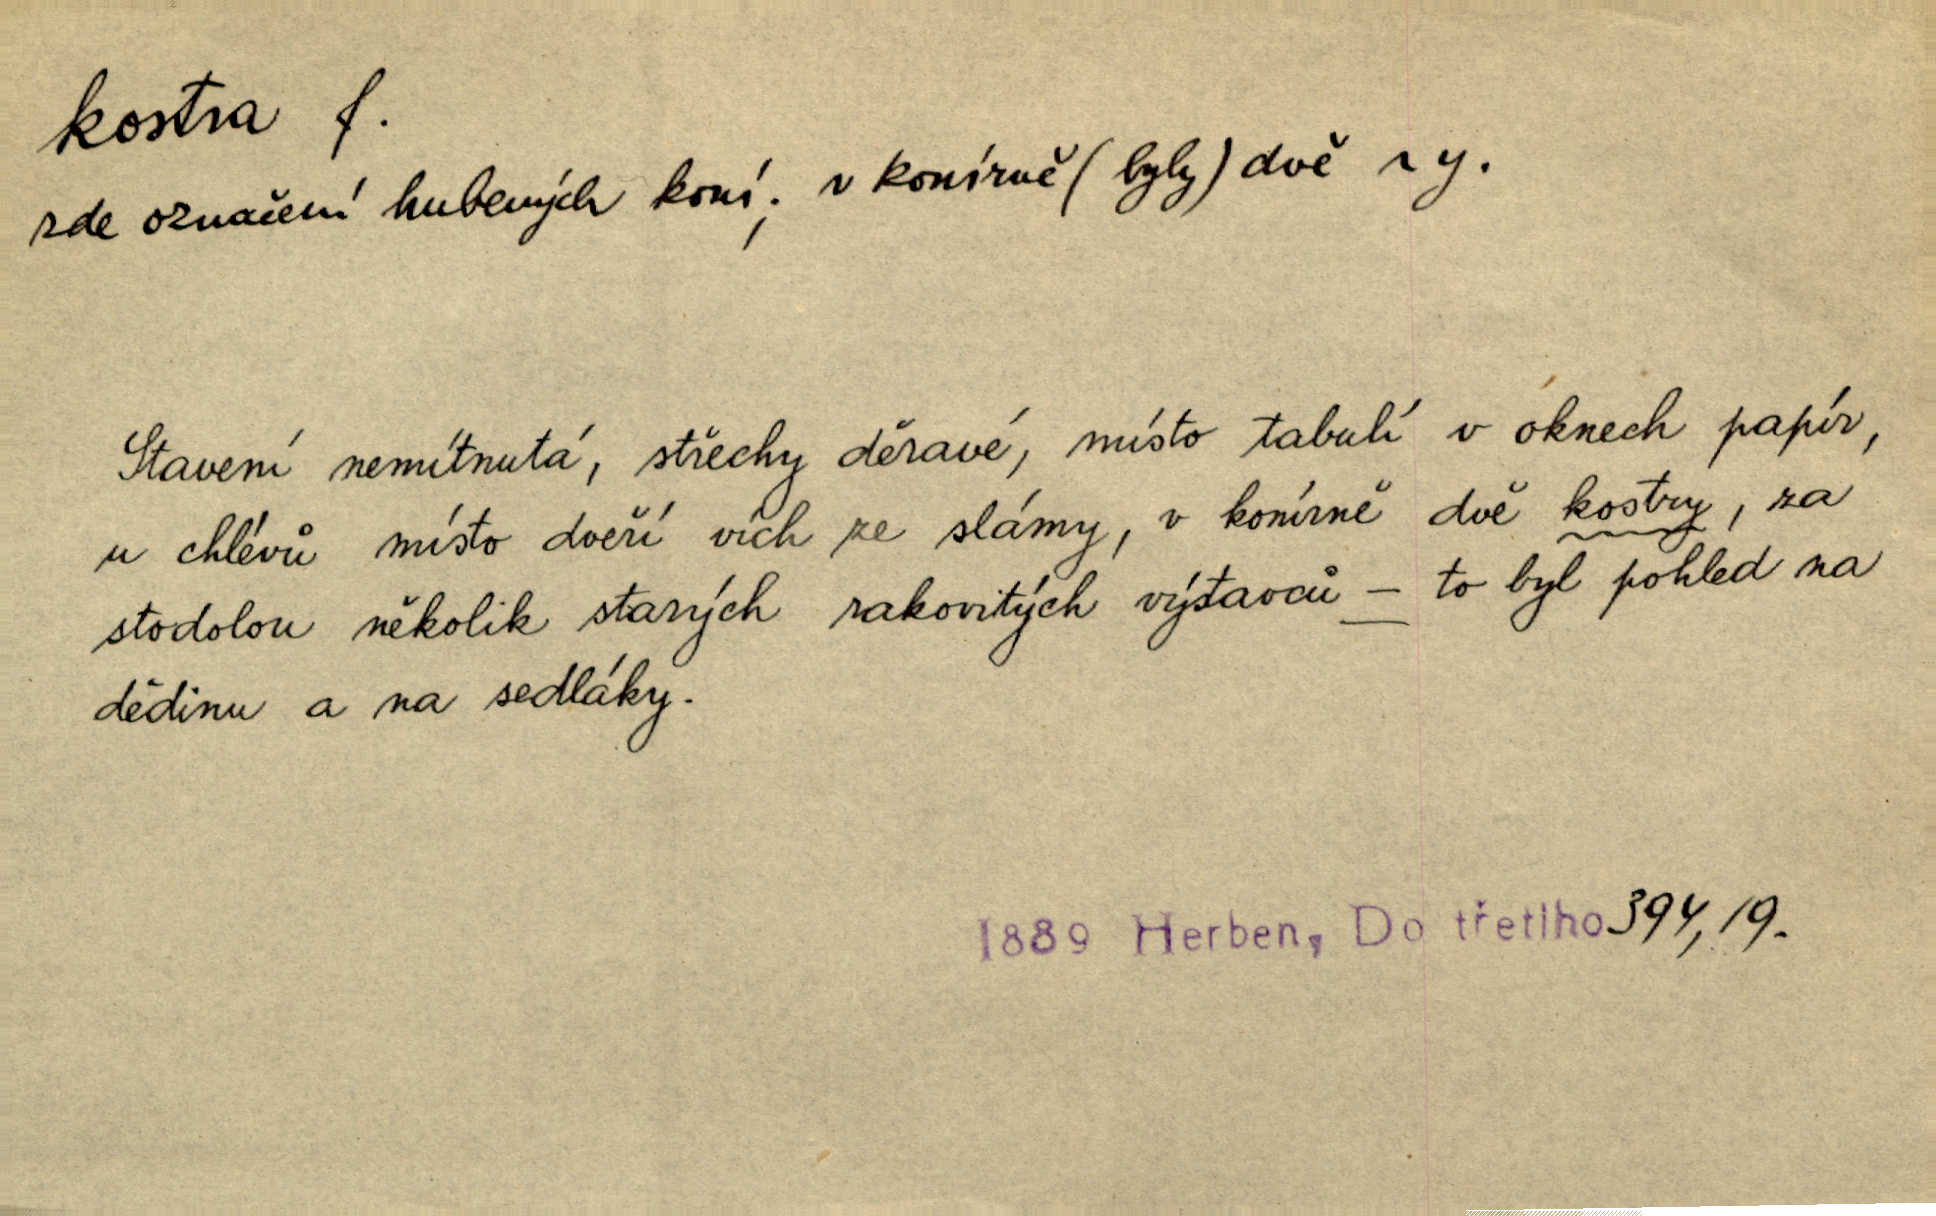 kostra f.
zde označení hubených koní; v konírně (byly) dvě ~y.
Stavení nemítnutá, střechy děravé, místo tabulí v oknech papír,
u chlévů místo dveří vích ze slámy, v konírně dvě kostry, za
stodolou několik starých rakovitých výstavců — to byl pohled na
dědinu a na sedláky.
1889 Herben, Do třetího 394,19.